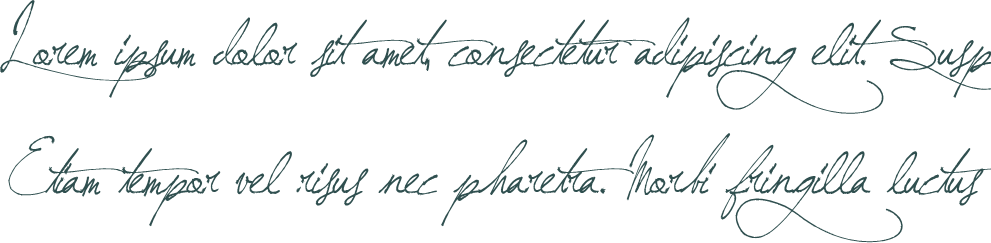 Lorem ipsum dolor sit amet, consectetur adipiscing elit. Susp
Etiam tempor vel risus nec pharetra. Morbi fringilla luctus